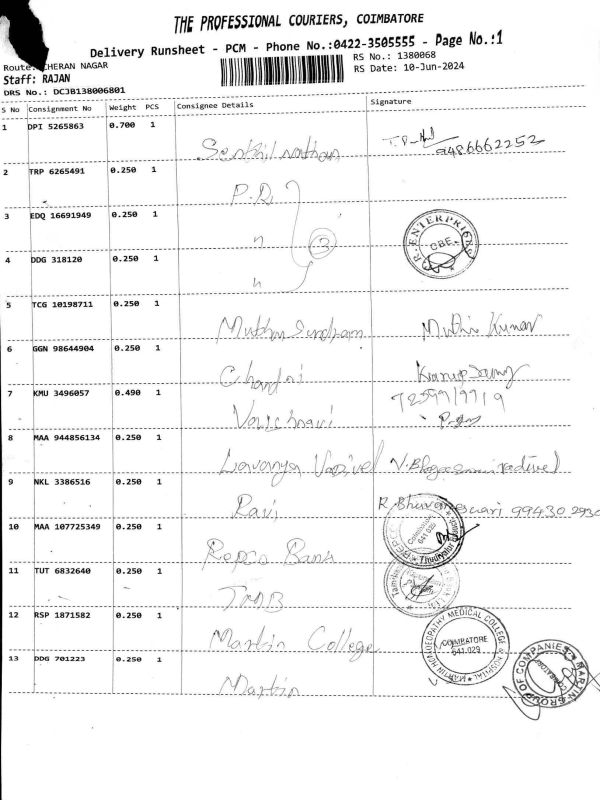 THE PROFESSIONAL COURIERS, COIMBATORE
Delivery Runsheet - PCM - Phone No.:0422-3505555 - Page No.:1
Route: CHERAN NAGAR
RS No.: 1380068
Staff: RAJAN
RS Date: 10-Jun-2024
DRS No.: DC3B138006801
S No Consignment No Weight PCS Consignee Details Signature
1 DPI 5265863 0.700 1 Senthil nathan 9486662252
2 TRP 6265491 0.250 1 P.R.
3 EDQ 16691949 0.250 1 " 3 R. ENTERPRISES CBE.
4 DDG 318120 0.250 1 "
5 TCG 10198711 0.250 1 Muthu Sundharam Muthu Kumar
6 GGN 98644904 0.250 1 Chandni
7 KMU 3496057 0.490 1 Vaishnavi
8 MAA 944856134 0.250 1 Lavanya Vadivel
9 NKL 3386516 0.250 1 Ravi R. Bhuvaneswari 99430 2930
10 MAA 107725349 0.250 1 Repco Bank Coimbatore 641 029 Thudiyalur Branch
11 TUT 6832640 0.250 1 TMB
12 RSP 1871582 0.250 1 Martin College MARTIN HOMOEOPATHY MEDICAL COLLEGE & HOSPITAL COIMBATORE 641.029
13 DDG 701223 0.250 1 Martin MARTIN GROUP OF COMPANIES COIMBATORE